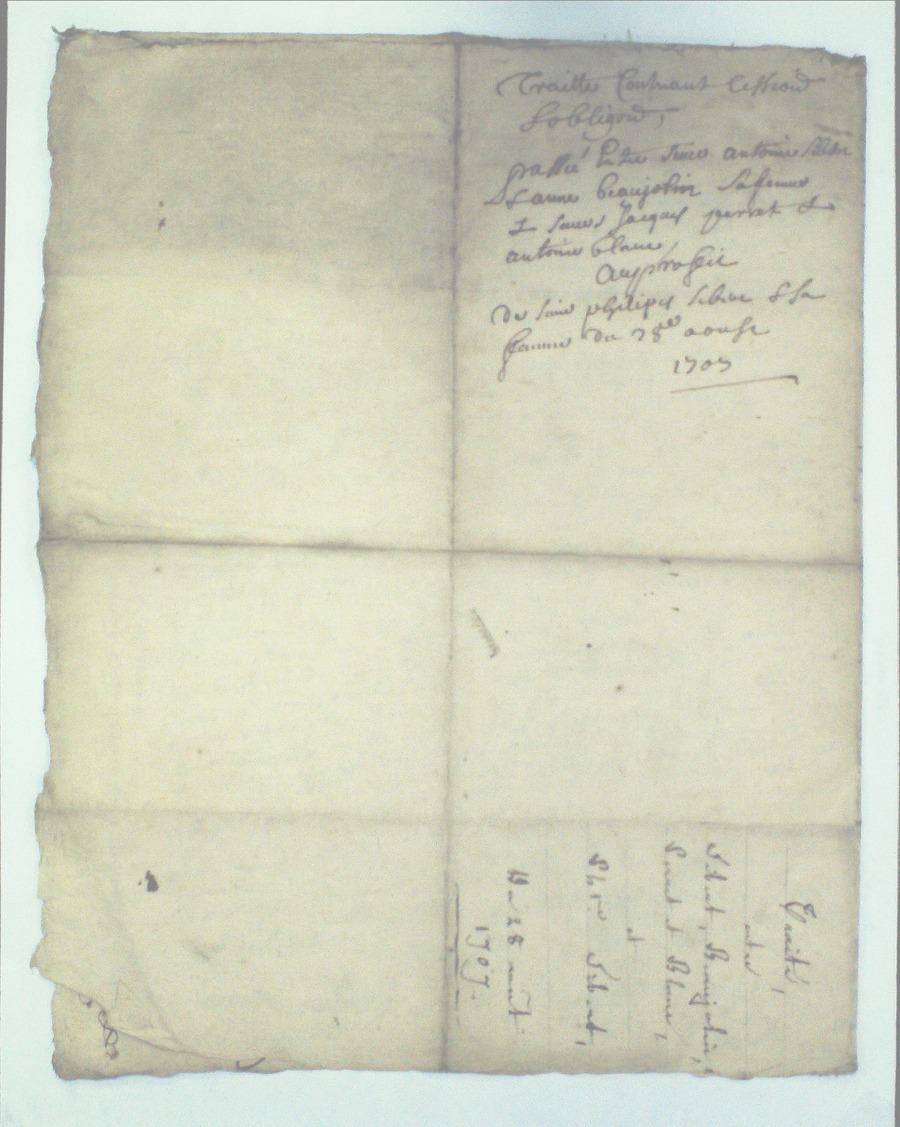 Traitté Contenant Cession
& obligon,
passé Entre sieur antoine
& anne beaujolin sa femme
& sieurs Jacques perret &
antoine blanc,
au proffit
de sieur philipes sibert & sa
femme du 28e aoust
1707
Traité,
entre
Sibert, Beaujolin,
Perret & Blanc,
et
Phpe Sibert,
Du 28 août
1707.